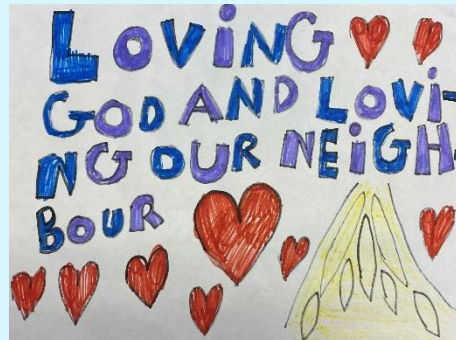 LOVING
GOD AND LOVI-
NG OUR NEIGH-
BOUR